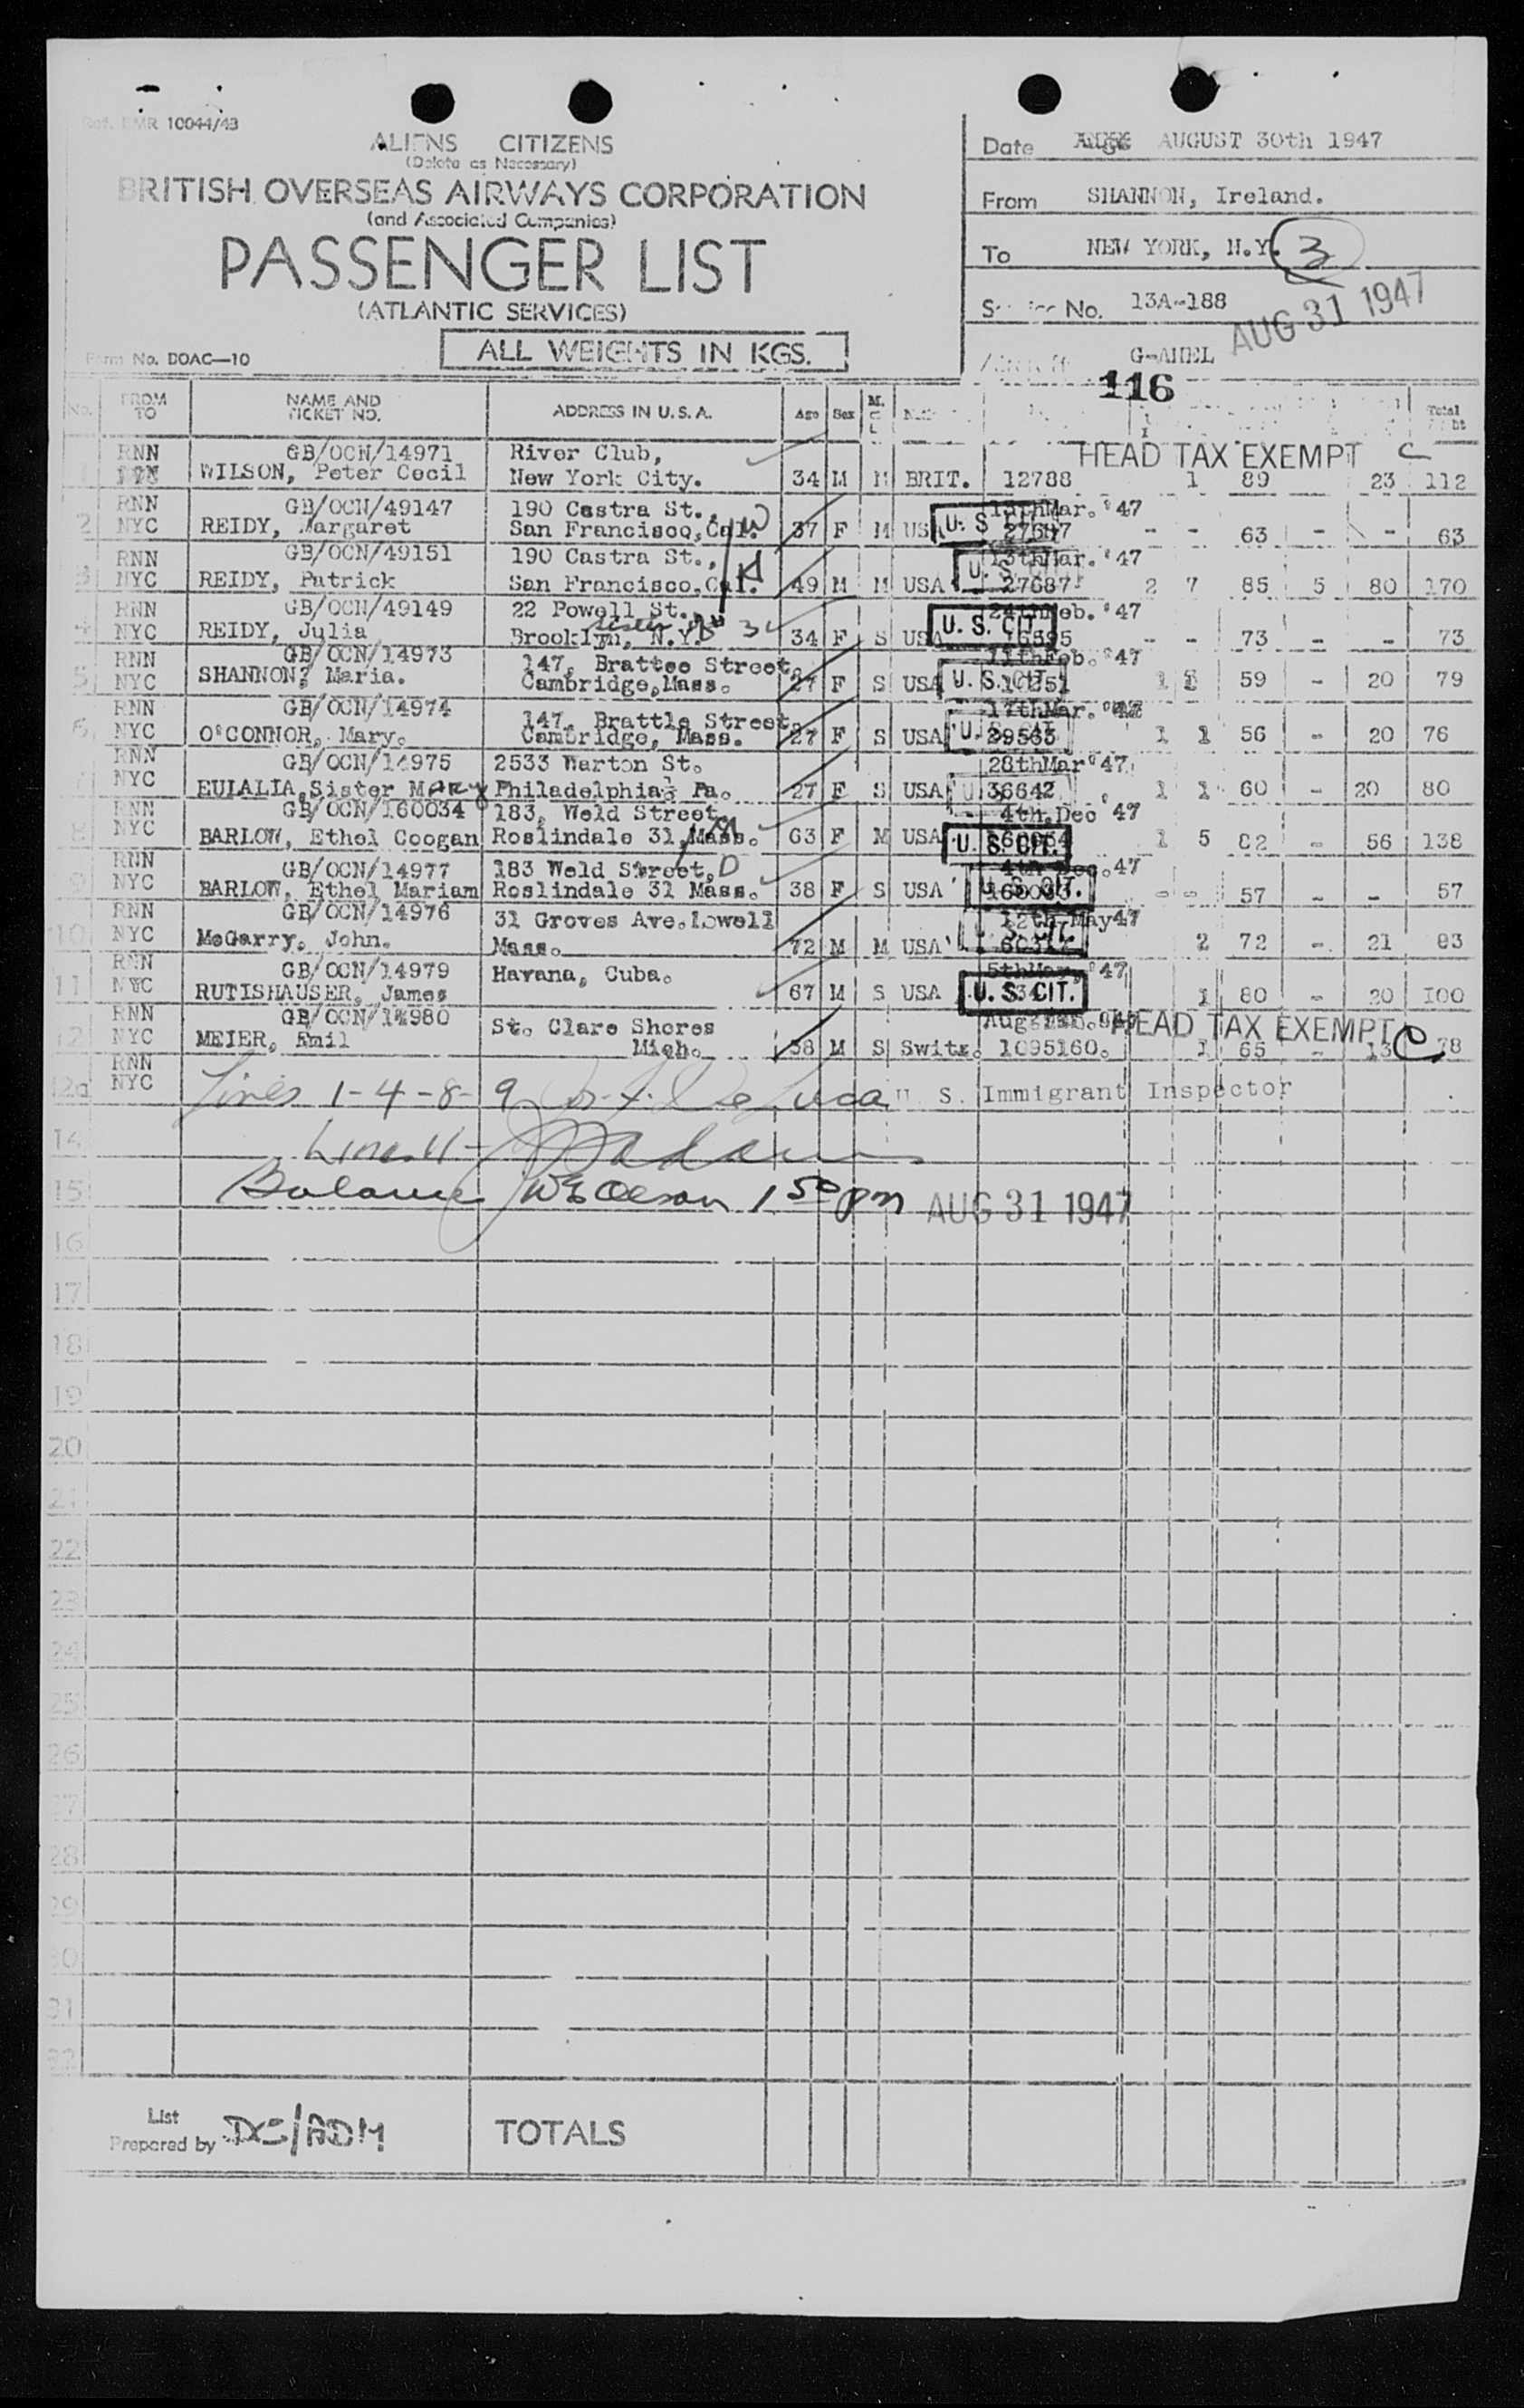 10044/43
ALIENS CITIZENS
(Delete as Necessary)
BRITISH OVERSEAS AIRWAYS CORPORATION
(and Associated Companies)
PASSENGER LIST
(ATLANTIC SERVICES)
Form No. BOAC—10
ALL WEIGHTS IN KGS.
Date AUGUST 30th 1947
From SHANNON, Ireland.
To NEW YORK, N.Y. 3
Service No. 13A-188
AUG 31 1947
G-AHEL
116
No. FROM TO NAME AND TICKET NO. ADDRESS IN U.S.A. Age Sex M. Total
RNN GB/OCN/14971 River Club, HEAD TAX EXEMPT C
1 WILSON, Peter Cecil New York City. 34 M M BRIT. 12788 1 89 23 112
RNN GB/OCN/49147 190 Castra St., Mar. '47
2 NYC REIDY, Margaret San Francisco, Cal. W 37 F M USA U. S 27687 - - 63 - - 63
RNN GB/OCN/49151 190 Castra St., 13thMar. '47
3 NYC REIDY, Patrick San Francisco, Cal. H 49 M M USA U. S 27687 2 7 85 5 80 170
RNN GB/OCN/49149 22 Powell St. 24thFeb. '47
4 NYC REIDY, Julia Brooklyn, N.Y. 34 F S USA U. S. CIT. - - 73 - - 73
RNN GB/OCN/14973 147, Brattee Street, 11thFeb. '47
5 NYC SHANNON, Maria. Cambridge, Mass. 27 F S USA U. S. CIT. 1 1 59 - 20 79
RNN GB/OCN/14974 147, Brattle Street, 17thMar. '47
6 NYC O'CONNOR, Mary. Cambridge, Mass. 27 F S USA U. 29563 1 1 56 - 20 76
RNN GB/OCN/14975 2533 Warton St. 28thMar '47
7 NYC EULALIA, Sister MARY Philadelphia Pa. 27 F S USA U 36642 1 1 60 - 20 80
RNN GB/OCN/160034 183, Weld Street, 4th. Dec '47
8 NYC BARLOW, Ethel Coogan Roslindale 31, Mass. M 63 F M USA U. S. CIT. 1 5 82 - 56 138
RNN GB/OCN/14977 183 Weld Street, D 4th Dec. 47
9 NYC BARLOW, Ethel Mariam Roslindale 31 Mass. 38 F S USA U. S. CIT. - - 57 - - 57
RNN GB/OCN/14976 31 Groves Ave. Lowell 12th May 47
10 NYC McGarry, John. Mass. 72 M M USA U. S. CIT. 2 72 - 21 93
RNN GB/OCN/14979 Havana, Cuba. 5thMar. '47
11 NYC RUTISHAUSER, James 67 M S USA U. S. CIT. 1 80 - 20 100
RNN GB/OCN/14980 St. Clare Shores Aug HEAD TAX EXEMPT C
12 NYC MEIER, Emil Mich. 58 M S Switz. 1095160. 1 65 - 13 78
RNN
12a NYC Lines 1-4-8-9 De Luca U. S. Immigrant Inspector
14 Line 11 - Adams
15 Balance W E Olson 1 50 pm AUG 31 1947
16
17
18
19
20
21
22
23
24
25
26
27
28
29
30
31
32
List
Prepared by DC/ADM TOTALS